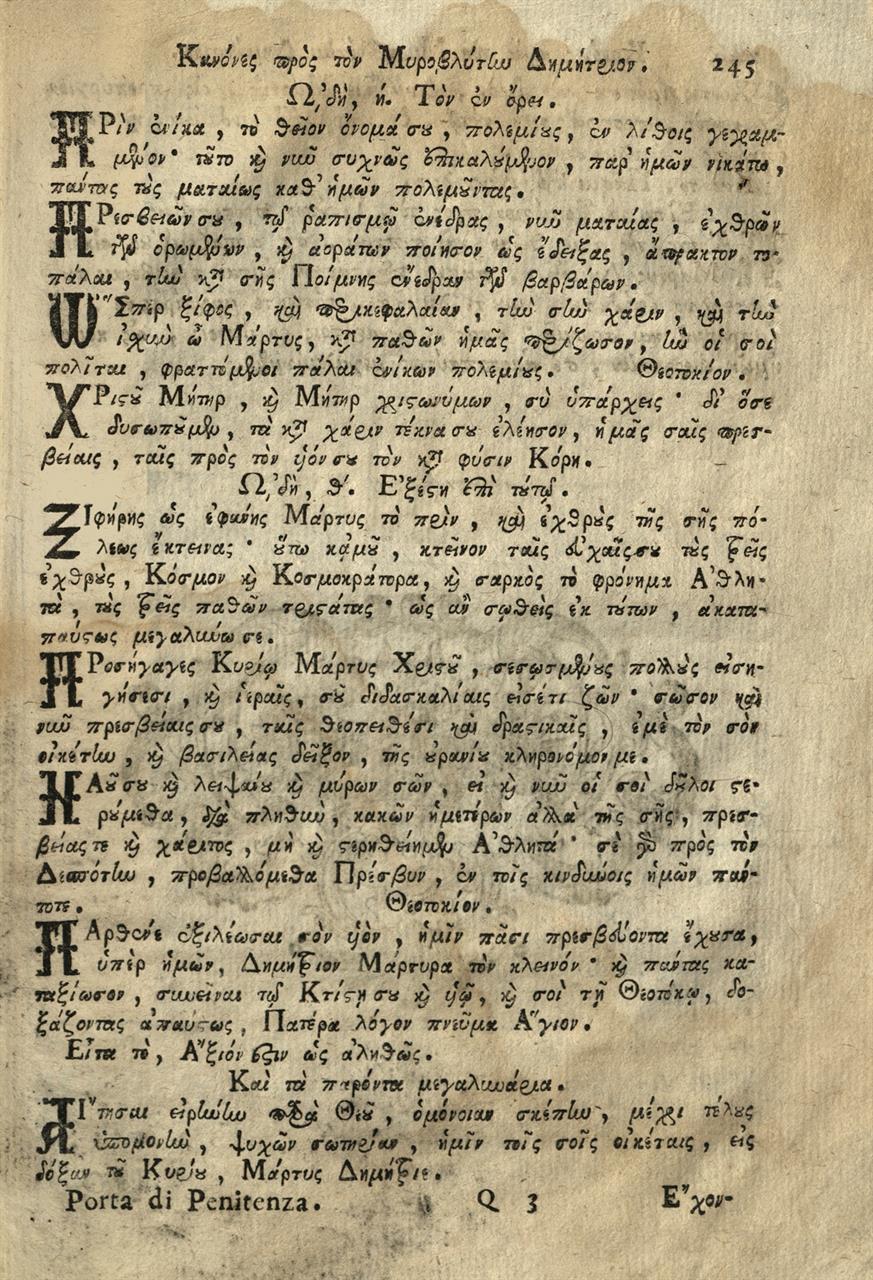 Κανόνες πρὸς τὸν Μυροβλύτην Δημήτριον. 245
Ὠδὴ, ή. Τὸν ἐν ὄρει.
ΠΡὶν ἐνίκα, τὸ θεῖον ὄνομά σου, πολεμίους, ἐν λίθοις γεγραμ-
μένον· τοῦτο καὶ νῦν συχνῶς ἐπικαλούμενον, παρ' ἡμῶν νικάτω,
πάντας τοὺς ματαίως καθ' ἡμῶν πολεμοῦντας.
ΠΡεσβειῶν σου, τῷ ῥαπισμῷ ἐνέδρας, νῦν ματαίας, ἐχθρῶν
τῶν ὁρωμένων, καὶ ἀοράτων ποίησον ὡς ἔδειξας, ἄπρακτον το-
πάλαι, τὴν κατὰ σῆς Ποίμνης ἐνέδραν τῶν βαρβάρων.
ὩΣπερ ξίφος, καὶ περικεφαλαίαν, τὴν σὴν χάριν, καὶ τὴν
ἰχὺν ὦ Μάρτυς, κατὰ παθῶν ἡμᾶς περίζωσον, ἣν οἱ σοὶ
πολῖται, φραττόμενοι πάλαι ἐνίκων πολεμίους. Θεοτοκίον.
ΧΡιστοῦ Μήτηρ, καὶ Μήτηρ χριστωνύμων, σὺ ὑπάρχεις· δι' ὅσε
δυσωποῦμεν, τὰ κατὰ χάριν τέκνα σου ἐλέησον, ἡμᾶς σαῖς πρεσ-
βείαις, ταῖς πρὸς τὸν ὑιόν σου τὸν κατὰ φύσιν Κόρη.
Ὠδὴ, θ'. Ἐξέστη ἐπὶ τούτῳ.
ΞΙφήρης ὡς ἐφάνης Μάρτυς τὸ πρὶν, καὶ ἐχθροὺς τῆς σῆς πό-
λεως ἔκτεινας· οὕτω κᾀμοῦ, κτεῖνον ταῖς εὐχαῖς σου τοὺς τρεῖς
ἐχθροὺς, Κόσμον καὶ Κοσμοκράτορα, καὶ σαρκὸς τὸ φρόνημα Ἀθλη-
τὰ, τοὺς τρεῖς παθῶν τριστάτας· ὡς ἂν σωθεὶς ἐκ τούτων, ἀκατα-
παύστως μεγαλύνω σε.
ΠΡοσήγαγες Κυρίῳ Μάρτυς Χριστοῦ, σεσωσμένους πολλοὺς εἰση-
γήσεσι, καὶ ἱεραῖς, σοῦ διδασκαλίαις εἰσέτι ζῶν· σῶσον καὶ
νῦν πρεσβείαις σου, ταῖς θεοπειθέσι καὶ δραστικαῖς, ἐμὲ τὸν σὸν
οἰκέτην, καὶ βασιλείας δεῖξον, τῆς οὐρανίου κληρονόμον με.
ΝΑοῦ σου καὶ λειψάνου καὶ μύρων σῶν, εἰ καὶ νῦν οἱ σοὶ δοῦλοι στε-
ρούμεθα, διὰ πληθὺν, κακῶν ἡμετέρων ἀλλὰ τῆς σῆς, πρεσ-
βείας τε καὶ χάριτος, μὴ καὶ στερηθείημεν Ἀθλητά· σὲ γὰρ πρὸς τὸν
Δεσπότην, προβαλλόμεθα Πρέσβυν, ἐν τοῖς κινδύνοις ἡμῶν πάν-
τοτε. Θεοτοκίον.
ΠΑρθένε ἐξιλέωσαι σὸν ὑιὸν, ἡμῖν πᾶσι πρεσβεύοντα ἔχουσα,
ὑπὲρ ἡμῶν, Δημήτριον Μάρτυρα τὸν κλεινόν· καὶ πάντας κα-
ταξίωσον, συνεῖναι τῷ Κτίστῃ σου καὶ ὑιῷ, καὶ σοὶ τῇ Θεοτόκῳ, δο-
ξάζοντας ἀπαύστως, Πατέρα λόγον πνεῦμα Ἅγιον.
Εἶτα τὸ, Ἄξιόν ἐστιν ὡς ἀληθῶς.
Καὶ τὰ παρόντα μεγαλυνάρια.
ΑἼτησαι εἰρήνην παρὰ Θεοῦ, ὁμόνοιαν σκέπην, μέχρι τέλους
ὑπομονὴν, ψυχῶν σωτηρίαν, ἡμῖν τοῖς σοῖς οἰκέταις, εἰς
δόξαν τοῦ Κυρίου, Μάρτυς Δημήτριε.
Porta di Penitenza. Q 3 Ἔχον-